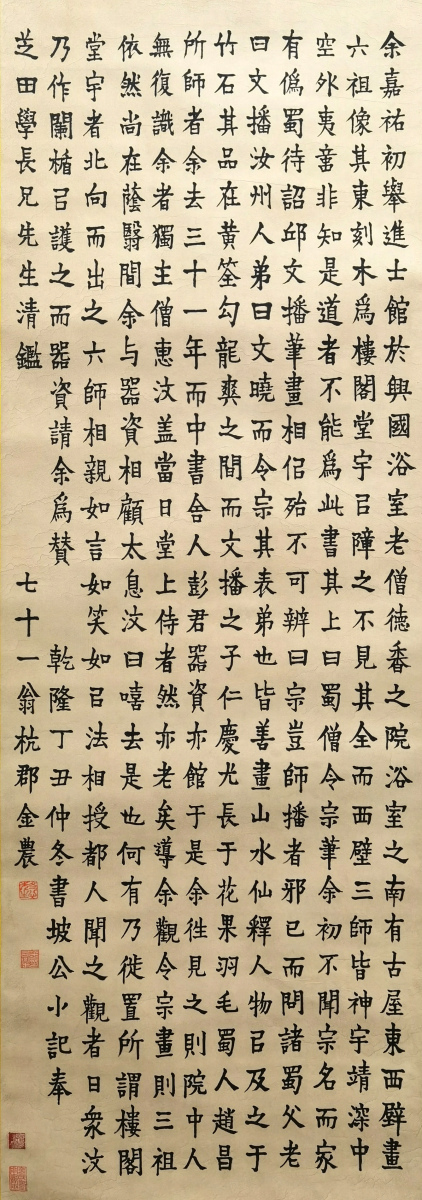 余嘉祐初舉進士館於興國浴室老僧德香之院浴室之南有古屋東西壁畫
六祖像其東刻木爲樓閣堂宇㠯障之不見其全而西壁三師皆神宇靖深中
空外夷啻非知是道者不能爲此書其上曰蜀僧令宗筆余初不聞宗名而家
有僞蜀待詔邱文播筆畫相侣殆不可辨曰宗豈師播者邪已而問諸蜀父老
曰文播汝州人弟曰文曉而令宗其表弟也皆善畫山水仙釋人物㠯及之于
竹石其品在黄筌勾龍爽之間而文播之子仁慶尤長于花果羽毛蜀人趙昌
所師者余去三十一年而中書舍人彭君器資亦館于是余徃見之則院中人
無復識余者獨主僧惠汶盖當日堂上侍者然亦老矣導余觀令宗畫則三祖
依然尚在蔭翳間余与器資相顧太息汶曰嘻去是也何有乃徙置所謂樓閣
堂宇者北向而出之六師相親如言如笑如㠯法相授都人聞之觀者日衆汶
乃作闌楯㠯護之而器資請余爲贊 乾隆丁丑仲冬書坡公小記奉
芝田學長兄先生清鑑 七十一翁杭郡金農